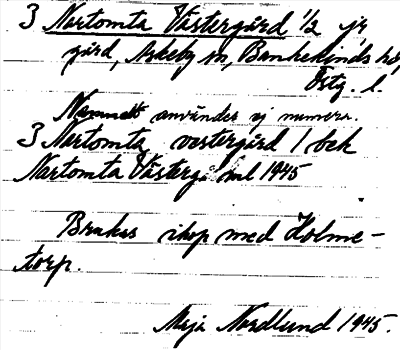 3 Nartomta Västergård 1/2 jr
gård, Askeby sn, Bankekinds hd,
Östg. l.
Namnet användes ej numera.
3 Nartomta västergård 1 och
Nartomta Västergård enl 1945
Brukas ihop med Holme-
torp.
Maja Nordlund 1945.